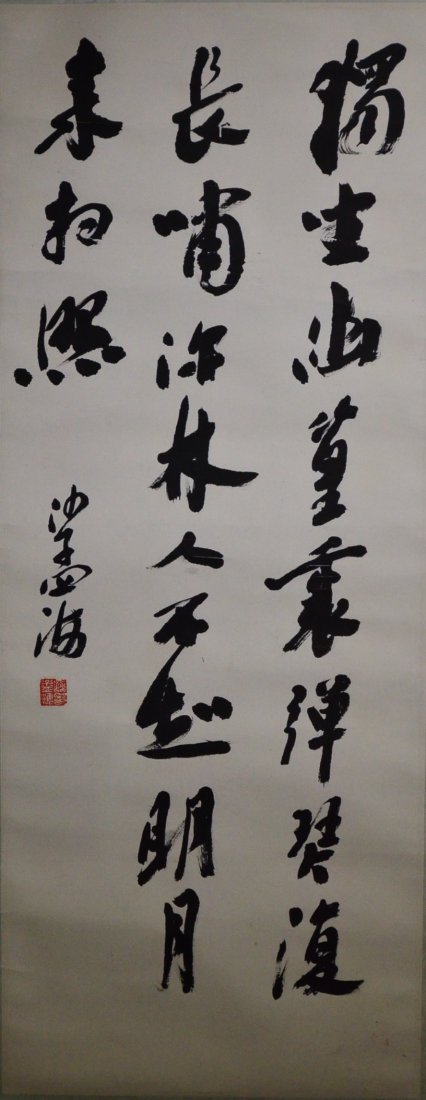 獨坐幽篁裏彈琴復
長嘯深林人不知明月
来相照
沙孟海